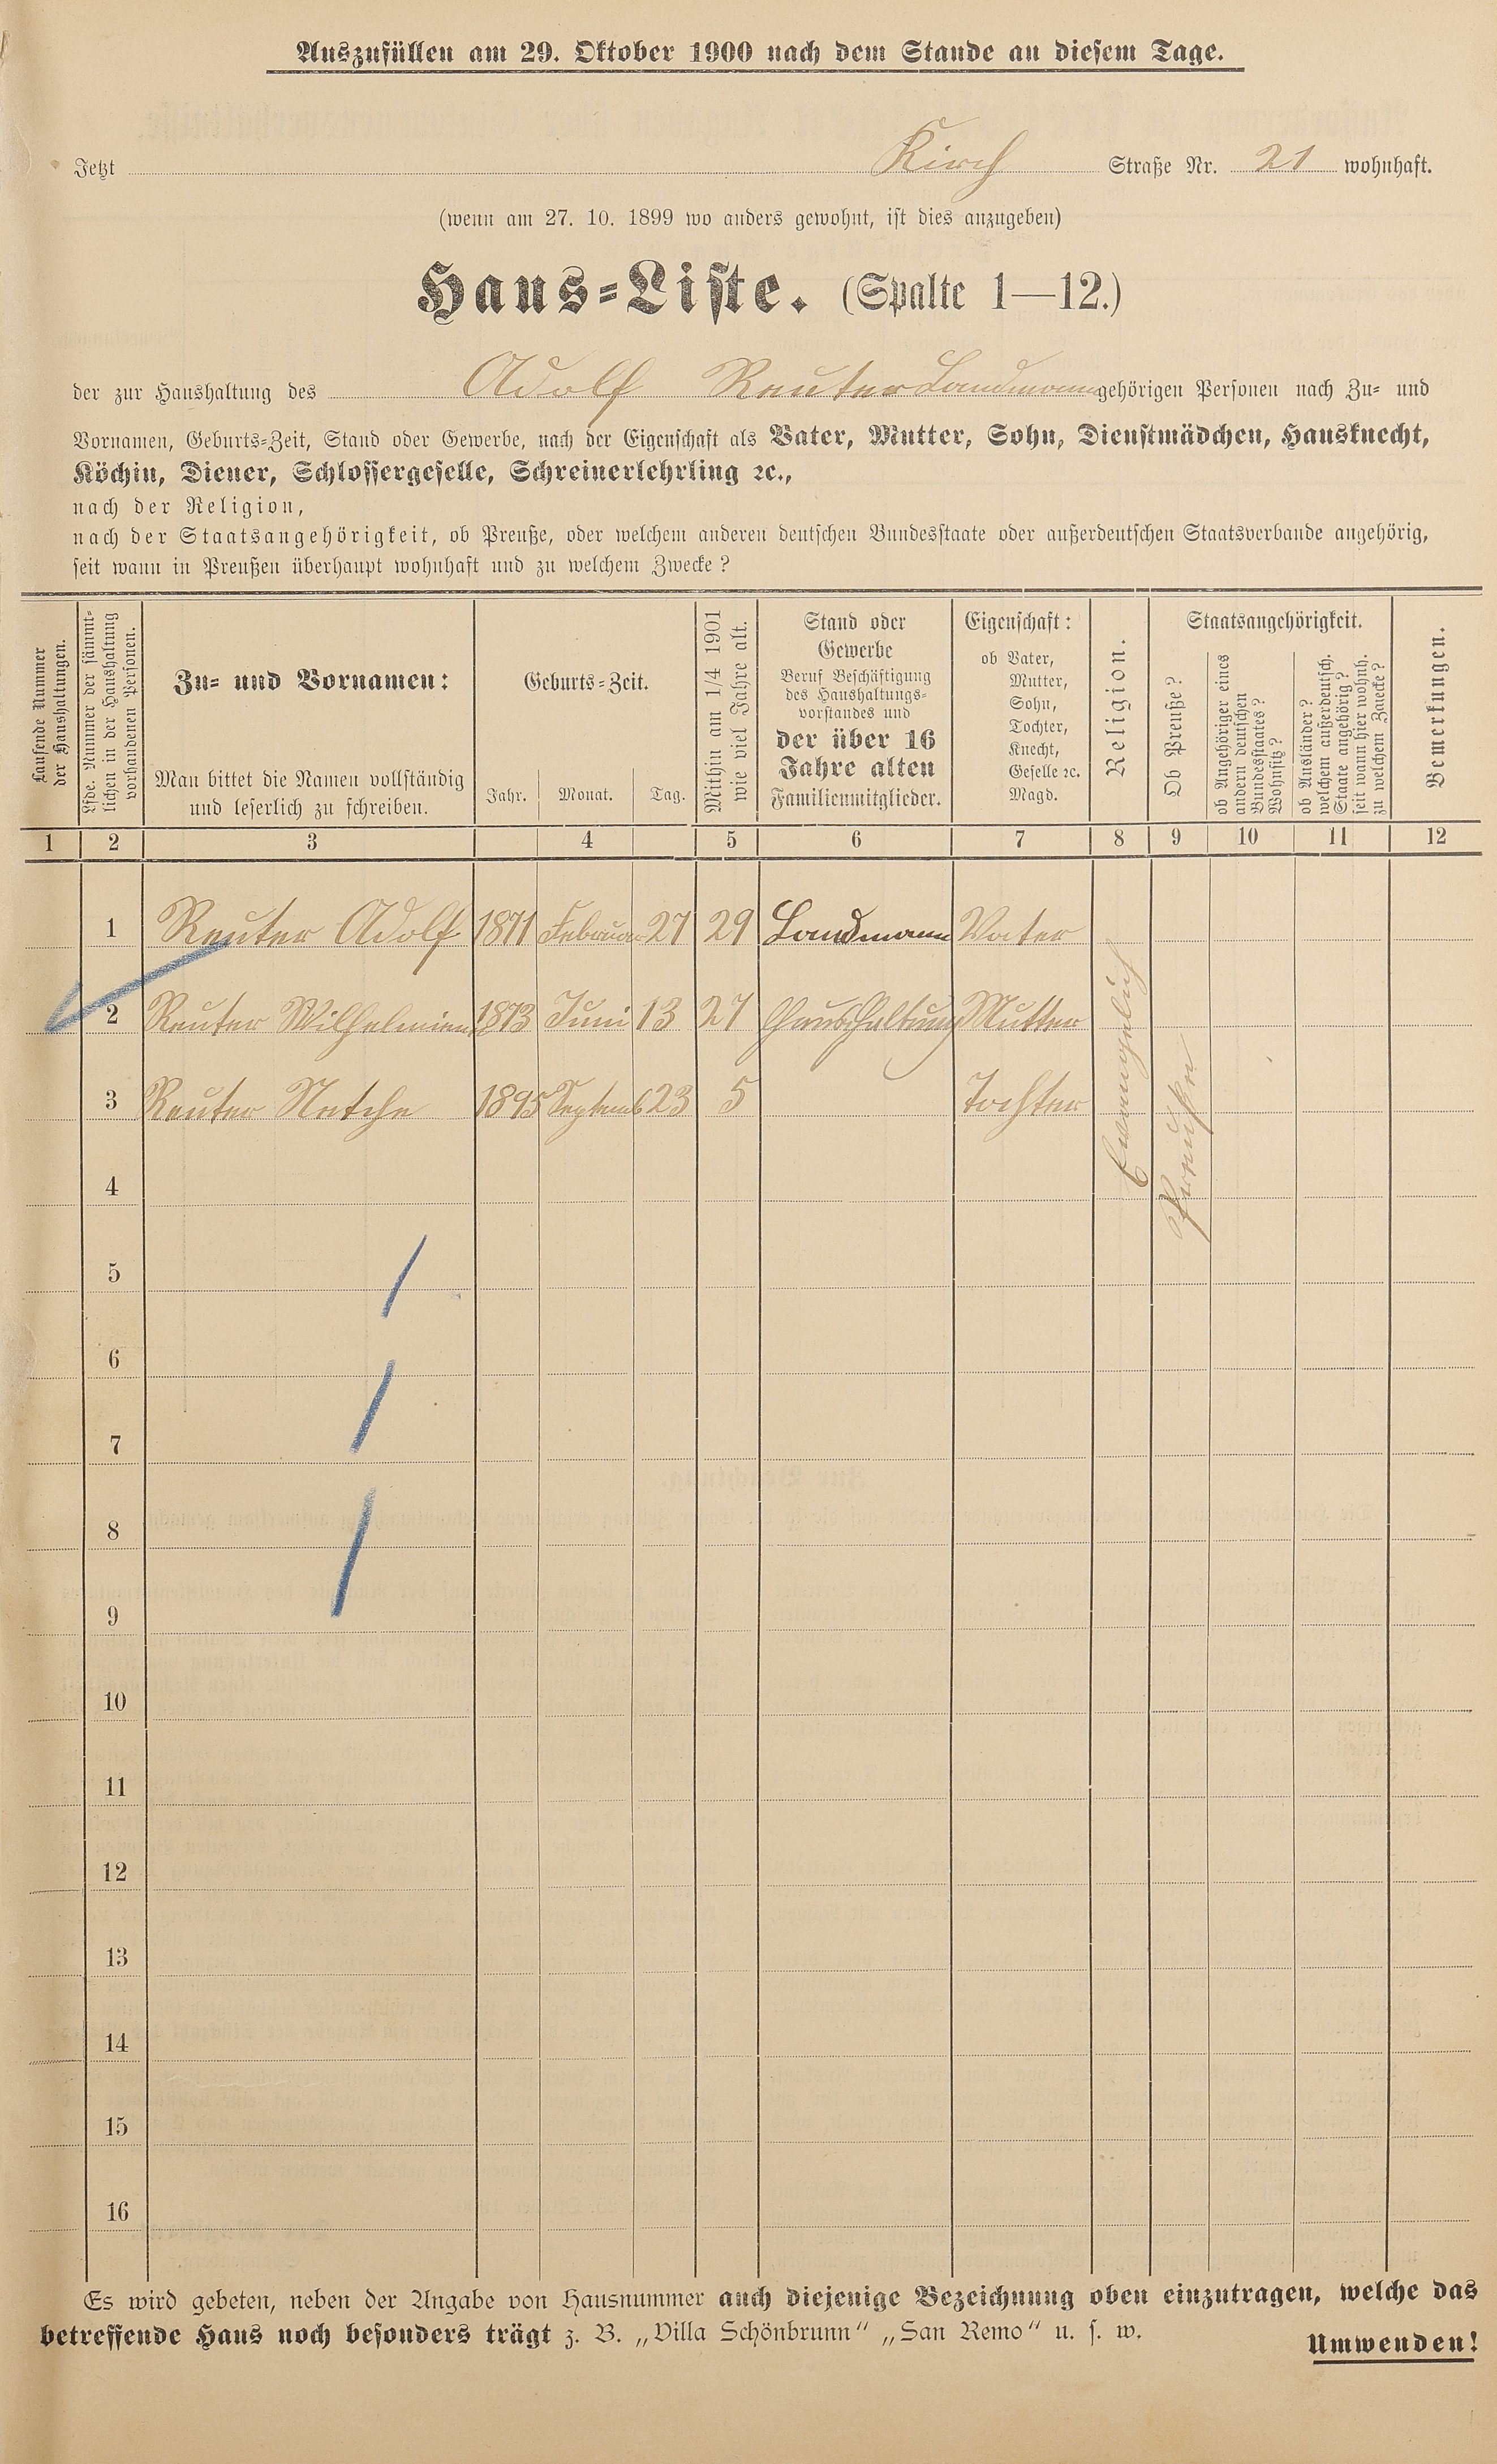 Auszufüllen am 29. Oktober 1900 nach dem Stande an diesem Tage.
Jetzt Kirch Straße Nr. 21 wohnhaft.
(wenn am 27. 10. 1899 wo anders gewohnt, ist dies anzugeben)
Haus=Liste. (Spalte 1—12.)
der zur Haushaltung des Adolf Reuter Landmann gehörigen Personen nach Zu= und
Vornamen, Geburts=Zeit, Stand oder Gewerbe, nach der Eigenschaft als Vater, Mutter, Sohn, Dienstmädchen, Hausknecht,
Köchin, Diener, Schlossergeselle, Schreinerlehrling ꝛc.,
nach der Religion,
nach der Staatsangehörigkeit, ob Preuße, oder welchem anderen deutschen Bundesstaate oder außerdeutschen Staatsverbande angehörig,
seit wann in Preußen überhaupt wohnhaft und zu welchem Zwecke?
Laufende Nummer
der Haushaltungen.
Lfde. Nummer der sämmt=
lichen in der Haushaltung
vorhandenen Personen.
Zu= und Vornamen:
Man bittet die Namen vollständig
und leserlich zu schreiben.
Geburts=Zeit.
Jahr. Monat. Tag.
Mithin am 1/4 1901
wie viel Jahre alt.
Stand oder
Gewerbe
Beruf Beschäftigung
des Haushaltungs=
vorstandes und
der über 16
Jahre alten
Familienmitglieder.
Eigenschaft:
ob Vater,
Mutter,
Sohn,
Tochter,
Knecht,
Geselle ꝛc.
Magd.
Religion.
Staatsangehörigkeit.
Ob Preuße?
ob Angehöriger eines
andern deutschen
Bundesstaates?
Wohnsitz?
ob Ausländer?
welchem außerdeutsch.
Staate angehörig?
seit wann hier wohnh.
zu welchem Zwecke?
Bemerkungen.
1 2 3 4 5 6 7 8 9 10 11 12
1 Reuter Adolf 1871 Februar 27 29 Landmann Vater
2 Reuter Wilhelmien 1873 Juni 13 27 Haushaltung Mutter
3 Reuter 1895 Septemb 23 5 Tochter
Evangelisch
Preußen
4
5
6
7
8
9
10
11
12
13
14
15
16
Es wird gebeten, neben der Angabe von Hausnummer auch diejenige Bezeichnung oben einzutragen, welche das
betreffende Haus noch besonders trägt z. B. „Villa Schönbrunn“ „San Remo“ u. s. w.
Umwenden!